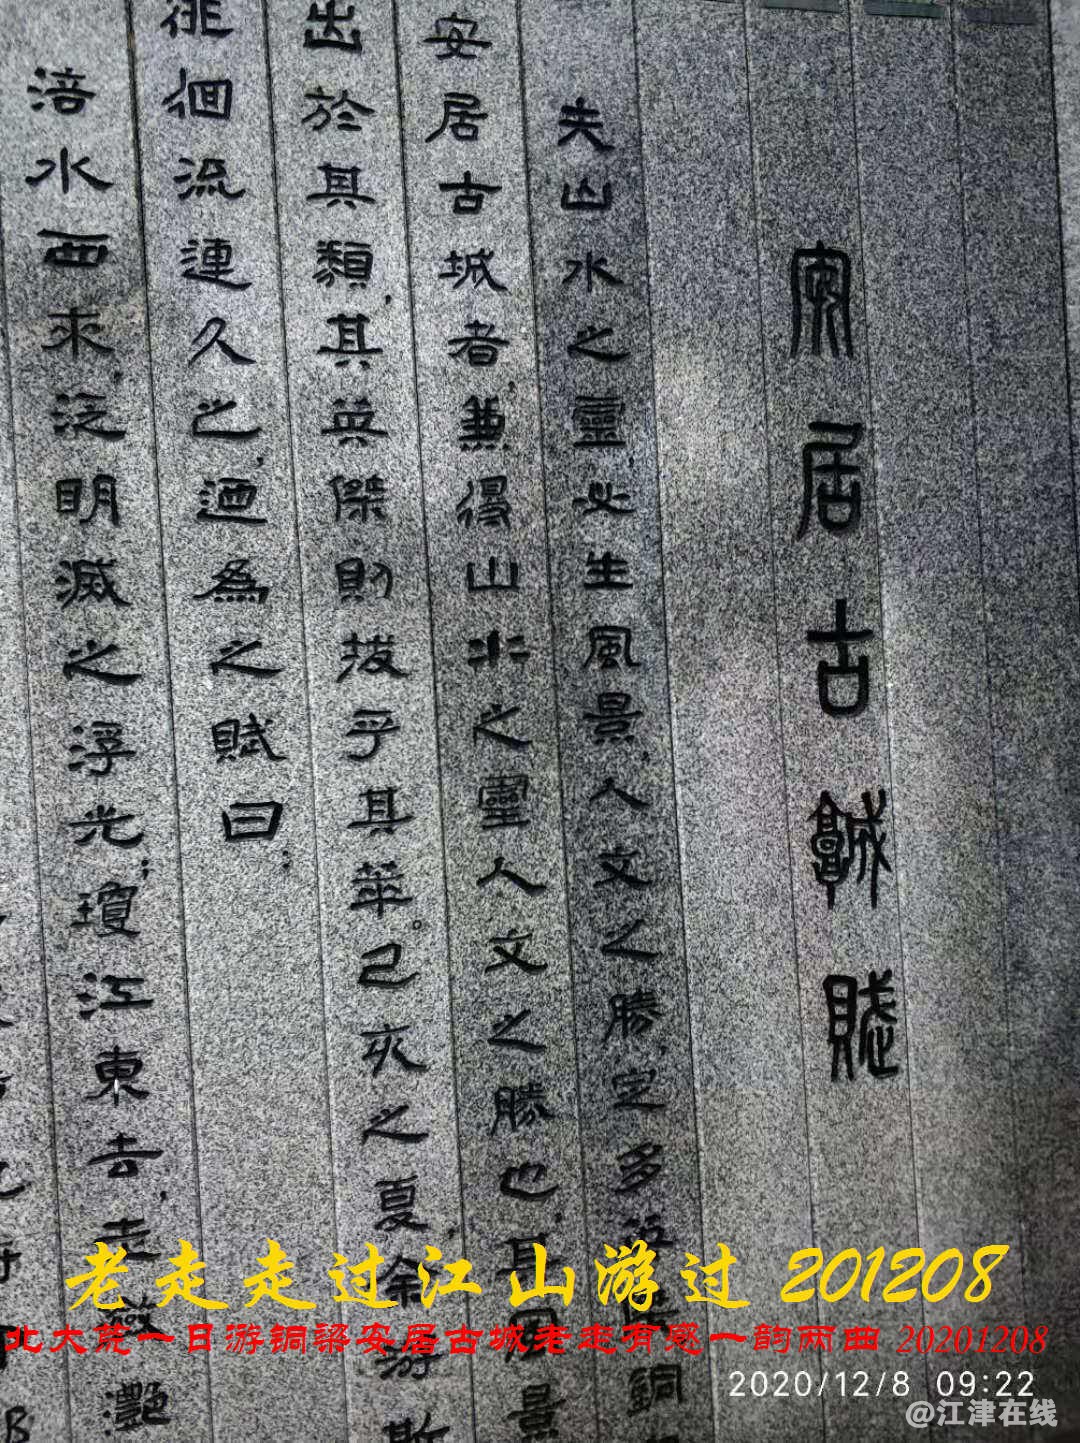 安居古城賦
夫山水之靈,必生風景,人文之勝,定多
銅
安居古城者,兼得山水之靈人文之勝也,其風景
出於其類,其英傑則拔乎其萃。己亥之夏,余游斯
徘徊流連久之,迺為之賦曰:
涪水西來,泛明滅之浮光;瓊江東去,走瀲灩
老走走过江山游过 201208
北大荒一日游铜梁安居古城老走有感一韵两曲 20201208
2020/12/8 09:22
@江津在线